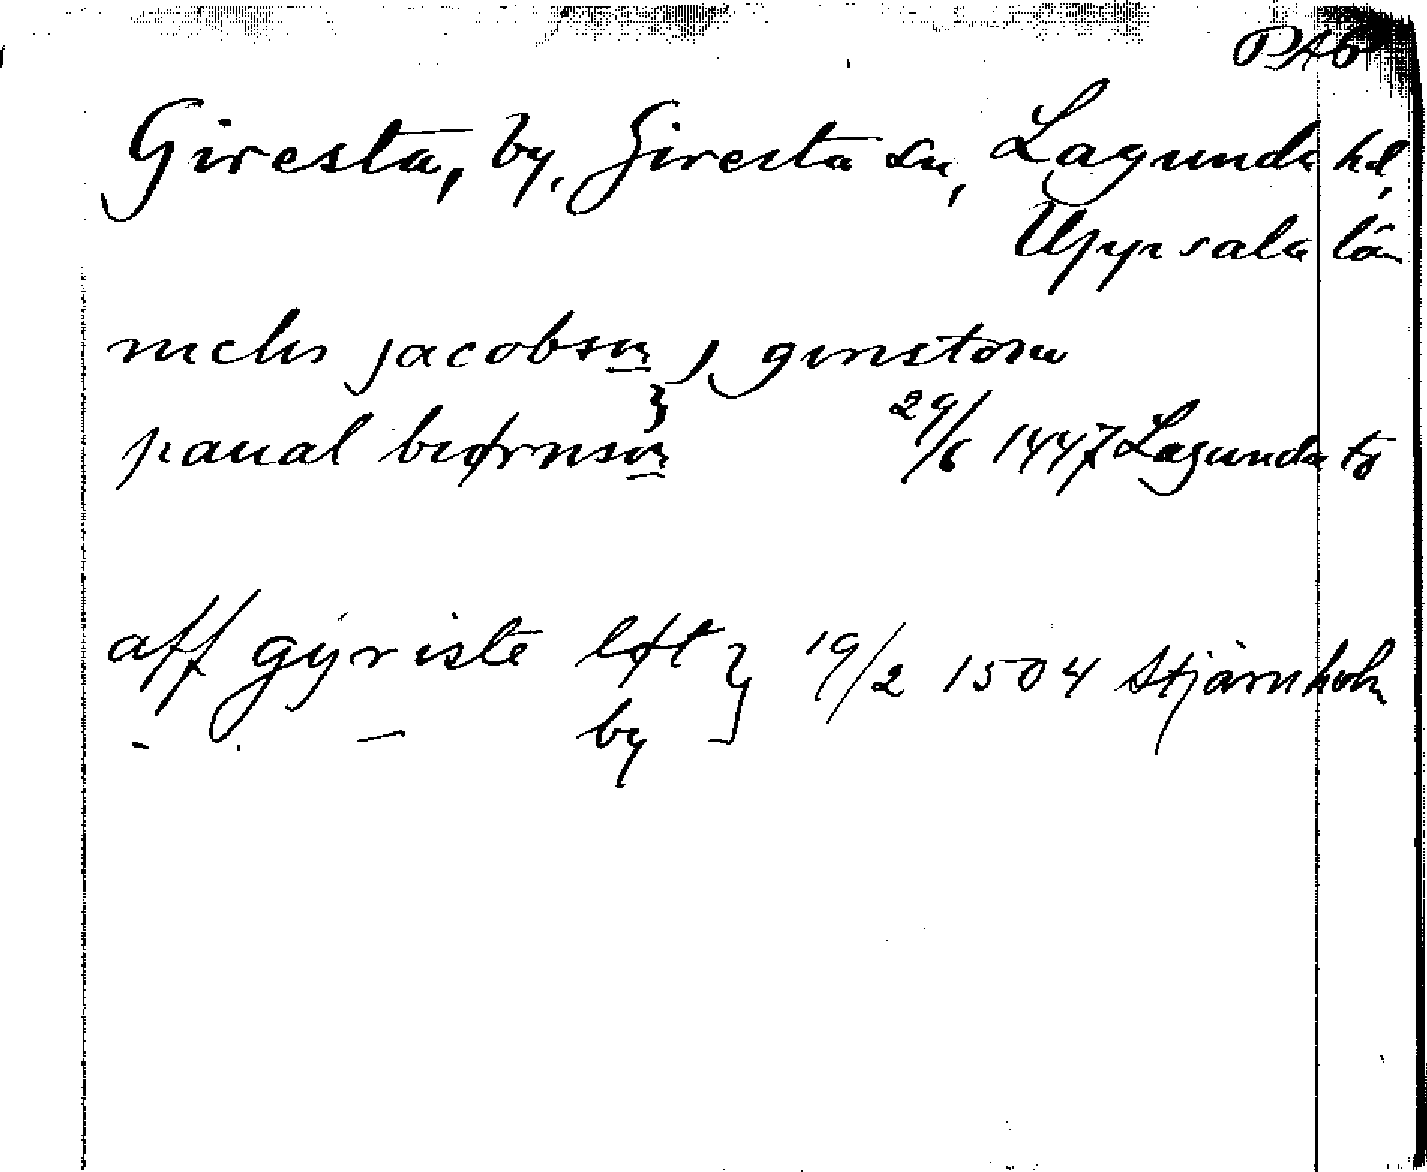 DAb
Giresta, by, Giresta sn, Lagunda hd,
Uppsala län
niclis jacobson } j ginstom
paual biørnson 29/6 1447 Lagunda
aff gyriste løt } 19/2 1504 Stjärnholm
- . - by